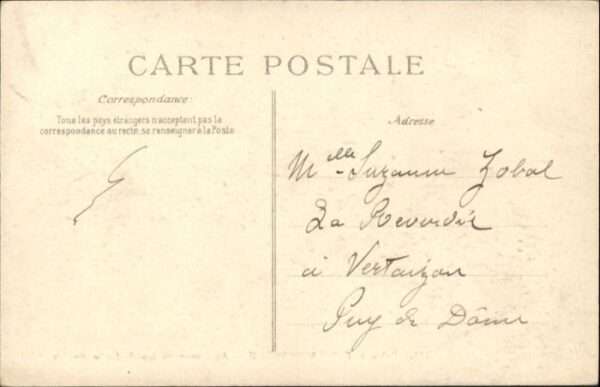 CARTE POSTALE
Correspondance:
Tous les pays étrangers n'acceptent pas la
correspondance au recto, se renseigner à la Poste
Adresse
Mlle Suzanne Zobal
La
à Vertaizon
Puy de Dôme